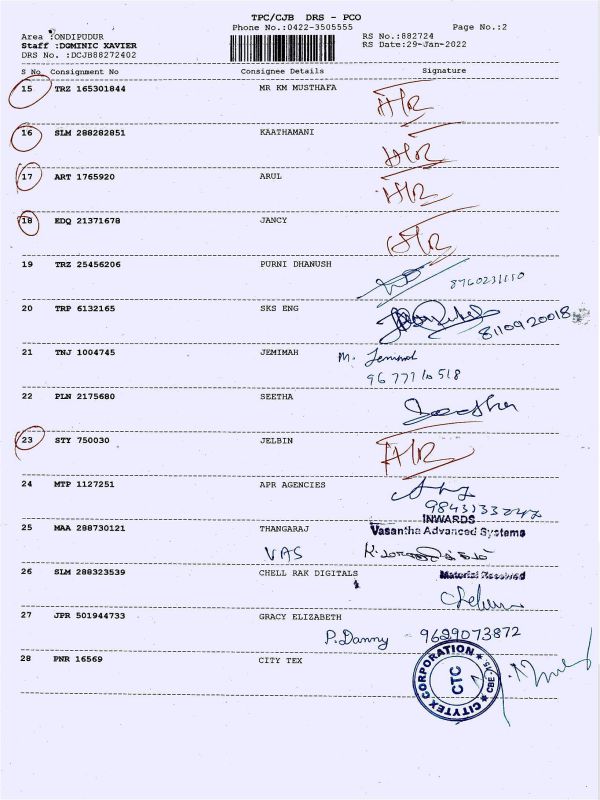 TPC/CJB DRS - PCO
Phone No.:0422-3505555
Page No.:2
Area :ONDIPUDUR
Staff :DOMINIC XAVIER
DRS No. :DCJB88272402
RS No.:882724
RS Date:29-Jan-2022
S No Consignment No Consignee Details Signature
15 TRZ 165301844 MR KM MUSTHAFA
16 SLM 288282851 KAATHAMANI
17 ART 1765920 ARUL
18 EDQ 21371678 JANCY
19 TRZ 25456206 PURNI DHANUSH
8760231110
20 TRP 6132165 SKS ENG
8110920018
21 TNJ 1004745 JEMIMAH M.
96 777 10 518
22 PLN 2175680 SEETHA Seetha
23 STY 750030 JELBIN
24 MTP 1127251 APR AGENCIES
9843133247
INWARDS
25 MAA 288730121 THANGARAJ Vasantha Advanced Systems
VAS
26 SLM 288323539 CHELL RAK DIGITALS Material Received
27 JPR 501944733 GRACY ELIZABETH
P.Danny - 9629073872
28 PNR 16569 CITY TEX
CITYTEX CORPORATION
CTC
CBE